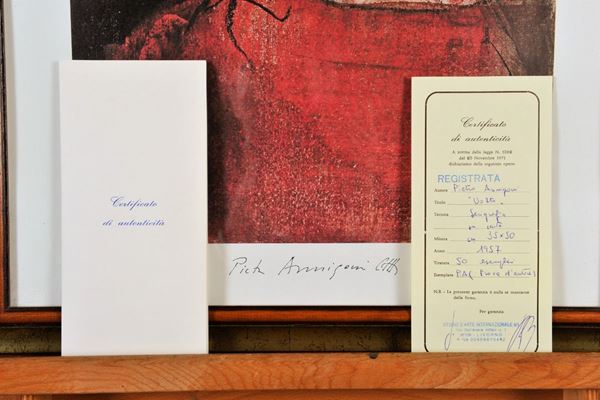 Certificato
di autenticità
Pietro Annigoni
Certificato
di autenticità
A norma della legge N. 1062
del 20 Novembre 1971
dichiariamo della seguente opera:
REGISTRATA
Autore Pietro Annigoni
Titolo "Volto"
Tecnica Serigrafia
su carta
Misura cm 35x50
Anno 1957
Tiratura 50 esemplari
Esemplare P.A.( Prova d'autore)
N.B. - La presente garanzia è nulla se mancante
della firma.
Per garanzia
STUDIO D'ARTE INTERNAZIONALE
LIVORNO